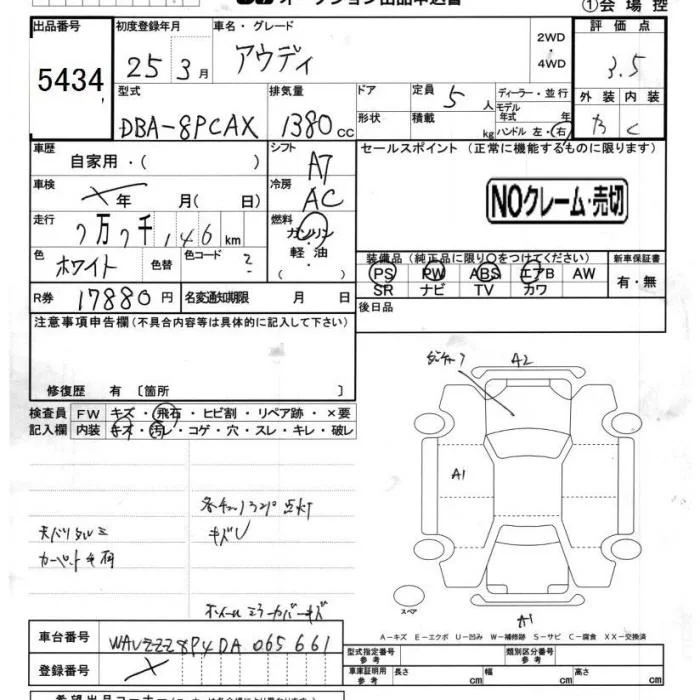 ①会場控
出品番号 初度登録年月 車名・グレード 2WD・4WD 評価点
5434 25年 3月 アウディ 3.5
型式 排気量 ドア 定員 5人 ディーラー・並行 外装 内装
DBA-8PCAX 1380cc 形状 積載 kg モデル年式 年 ハンドル 左・右 C
車歴 シフト セールスポイント (正常に機能するものに限ります)
自家用・( ) AT
車検 冷房 NOクレーム・売切
年 月( 日) AC
走行 燃料
7万7千146km ガソリン・軽油・( )
色 色替 色コード 装備品(純正品に限り○をつけてください) 新車保証書
ホワイト PS PW ABS エアB AW 有・無
SR ナビ TV カワ
R券 17880円 名変通知期限 月 日 後日品
注意事項申告欄(不具合内容等は具体的に記入して下さい)
A2
修復歴 有 〔箇所 〕
検査員 FW キズ・飛石・ヒビ割・リペア跡・×要
記入欄 内装 キズ・汚レ・コゲ・穴・スレ・キレ・破レ
A1
キズU
スペア
A1
A-キズ E-エクボ U-凹み W-補修跡 S-サビ C-腐食 XX-交換済
車台番号 WAUZZZ8P4DA065661
型式指定番号 参考 類別区分番号 参考
登録番号
車庫証明用 参考 長さ cm 幅 cm 高さ cm